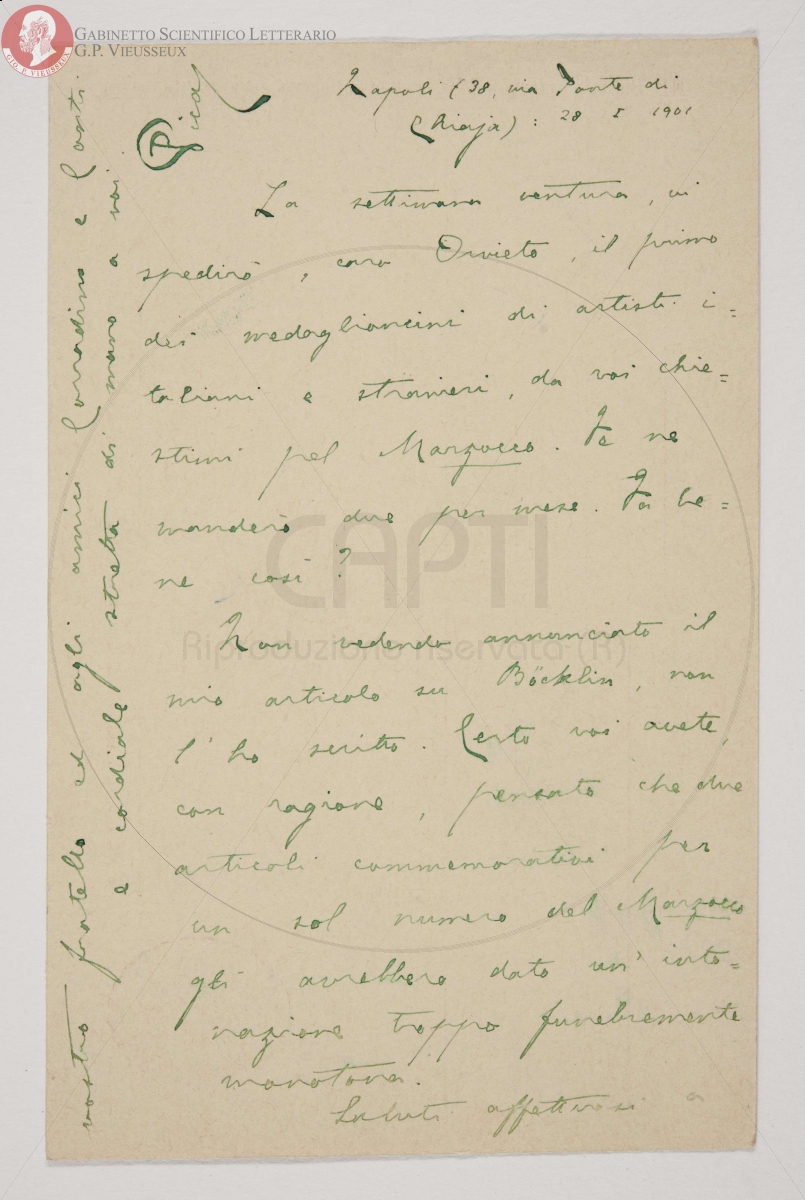 GABINETTO SCIENTIFICO LETTERARIO
G.P. VIEUSSEUX
GIO. P. VIEUSSEUX
Napoli (38, via Ponte di
Chiaja): 28 I 1901
La settimana ventura, vi
spedirò, caro Orvieto, il primo
dei medaglioncini di artisti i=
taliani e stranieri, da voi chie=
stimi pel Marzocco. Ve ne
manderò due per mese. Va be=
ne così?
Non vedendo annunciato il
mio articolo su Böcklin, non
l'ho scritto. Certo voi avete,
con ragione, pensato che due
articoli commemorativi per
un sol numero del Marzocco
gli avrebbero dato un'into=
nazione troppo funebremente
monotona.
Saluti affettuosi a
vostro fratello ed agli amici Corradino e Conti
e cordiale stretta di mano a voi
Pica
CAPTI
Riproduzione riservata (R)